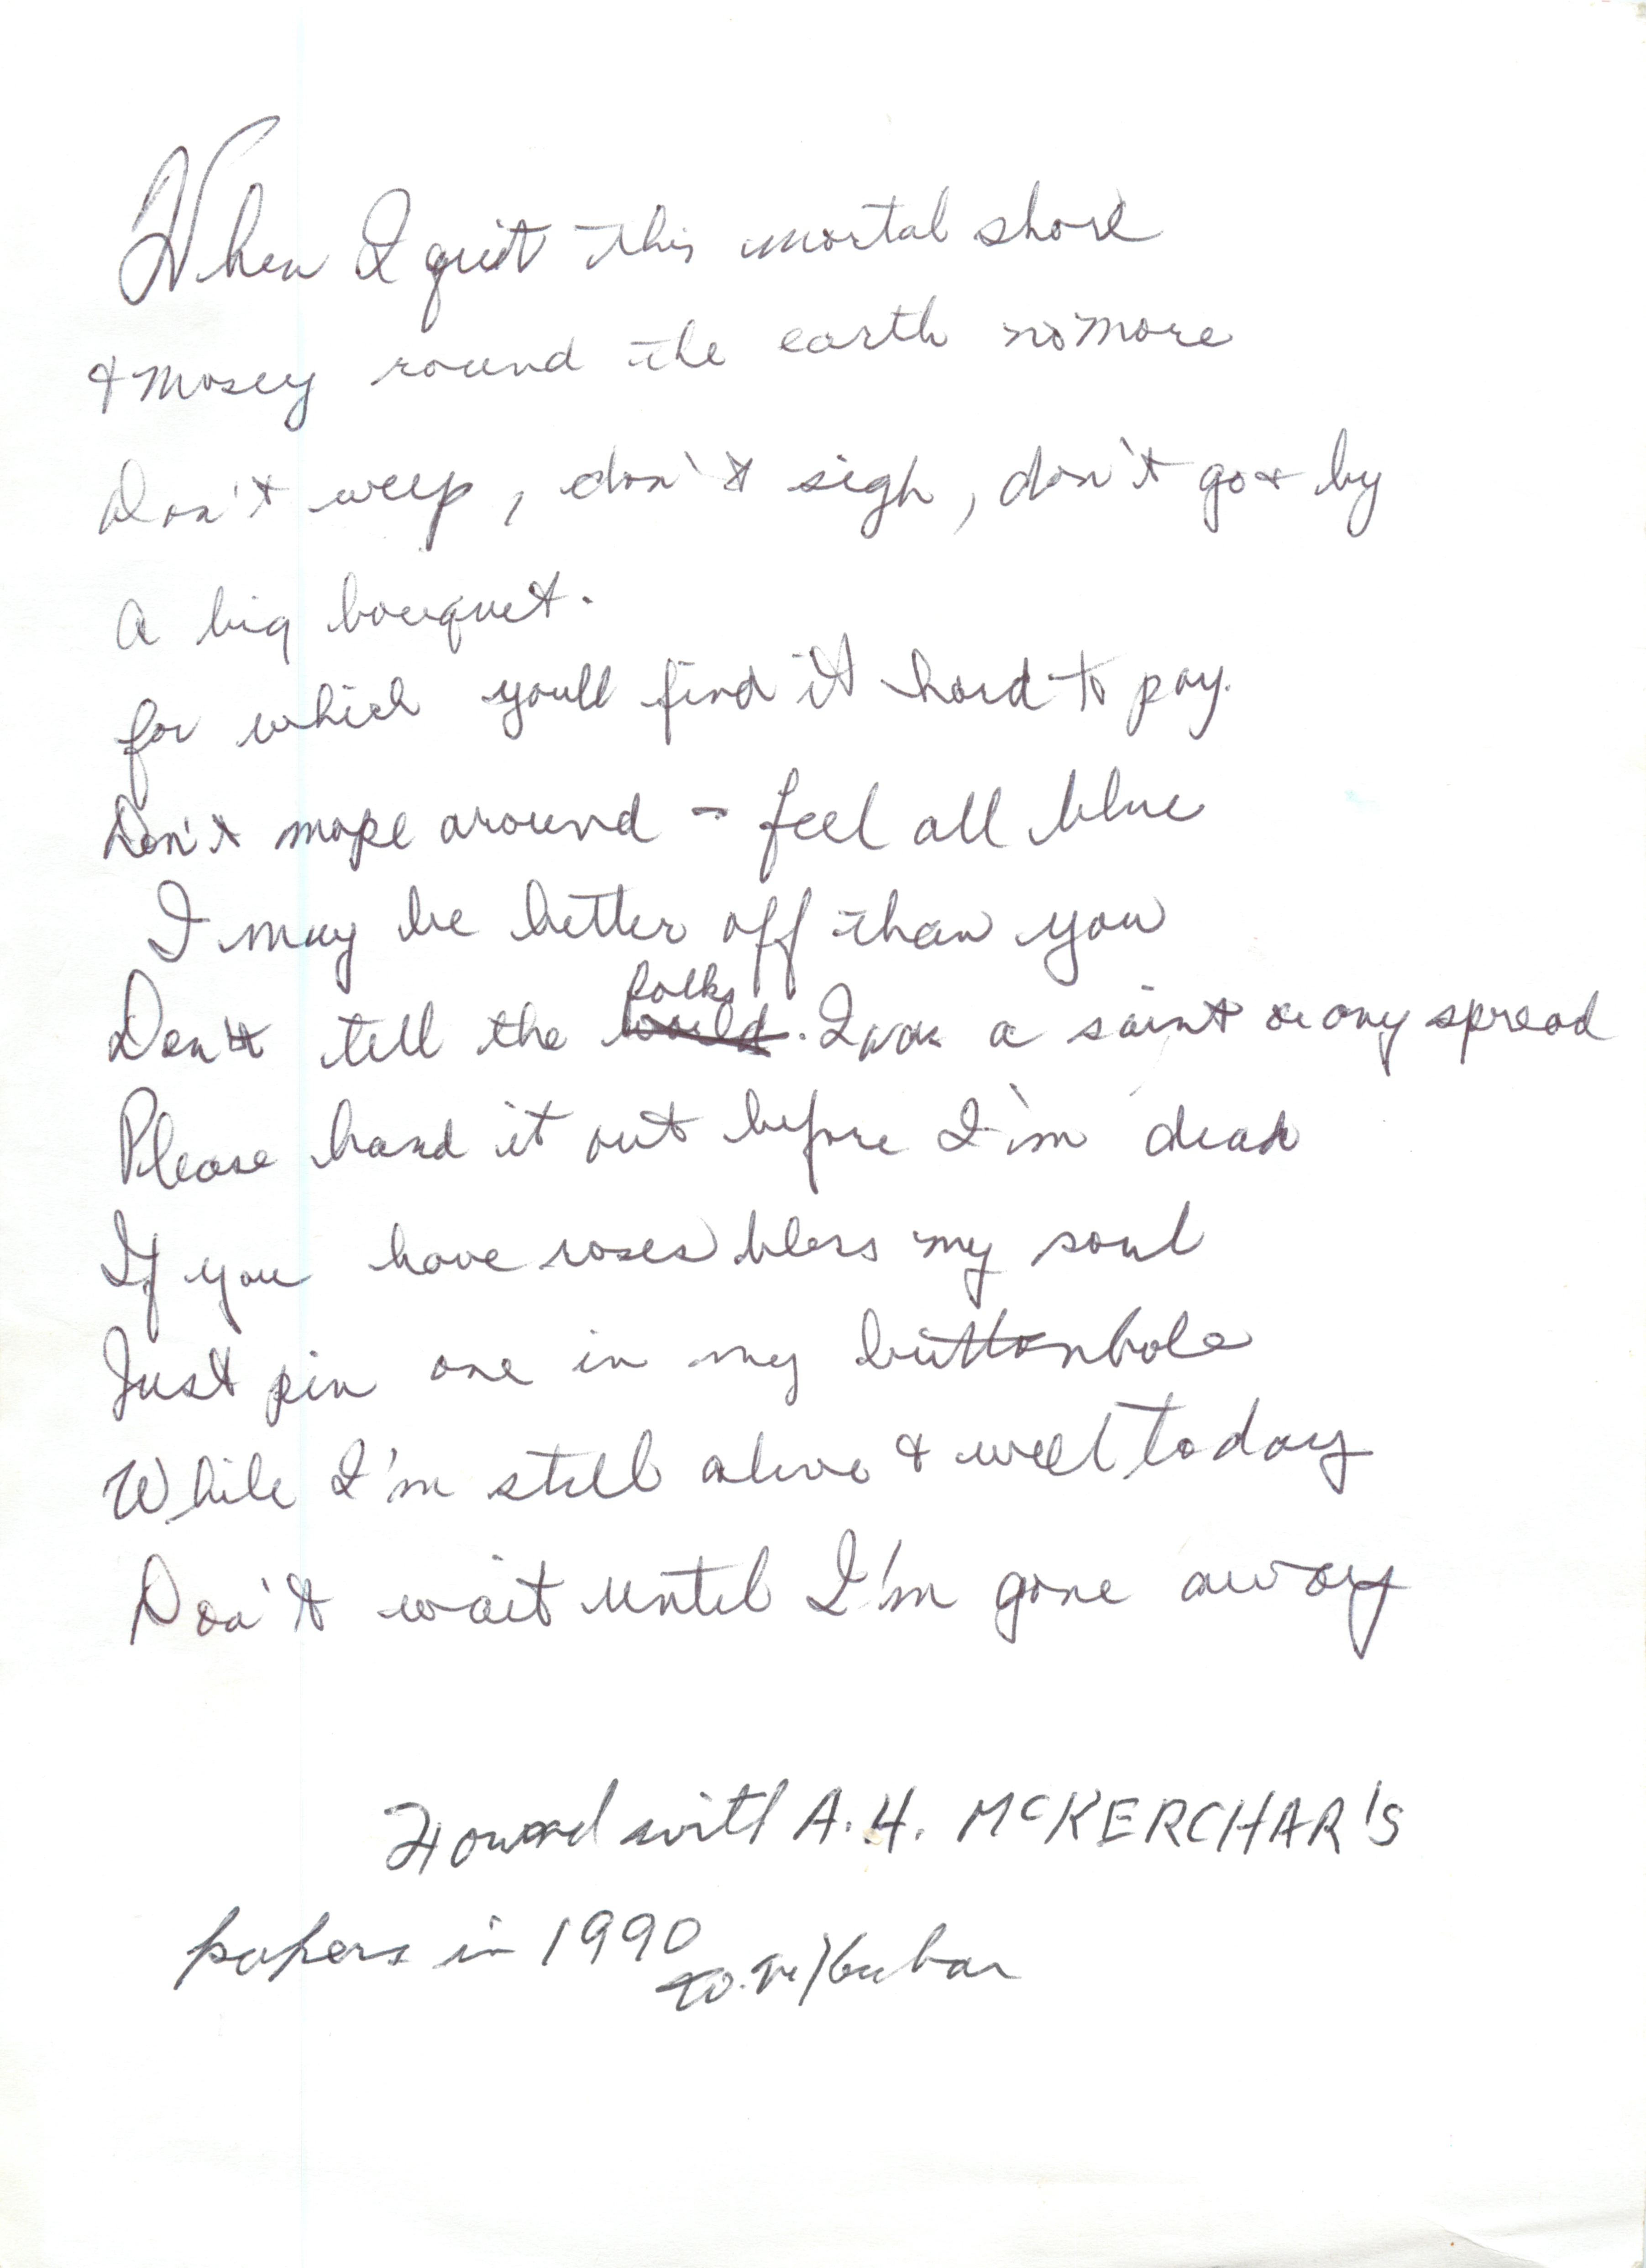 When I quit this mortal shore
& mosey round the earth no more
Don't weep, don't sigh, don't go & by
a big bouquet.
for which youll find it hard to pay.
Don't mope around - feel all blue
I may be better off than you
Don't tell the folks world. I was a saint or any spread
Please hand it out before I'm dead
If you have roses bless my soul
Just pin one in my buttonhole
While I'm still alive & well today
Don't wait until I'm gone away
Found with A. H. McKERCHAR'S
papers in 1990